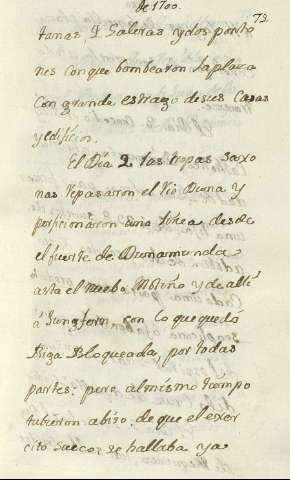 de 1700.
73.
tanas 4 Galeras y dos ponto
nes con que bombearon la plaza
con grande estrago de sus Casas
y edificios.
El Dia 2 las tropas Saxo
nas repasaron el Rio Duna y
una linea desde
el fuerte de Dunamunda
asta el Nuebo Molino y de alli
á Jungfern, con lo que quedó
Riga Bloqueada, por todas
partes: pero al mismo tiempo
tubieron abiso, de que el exer
cito Sueco se hallaba ya